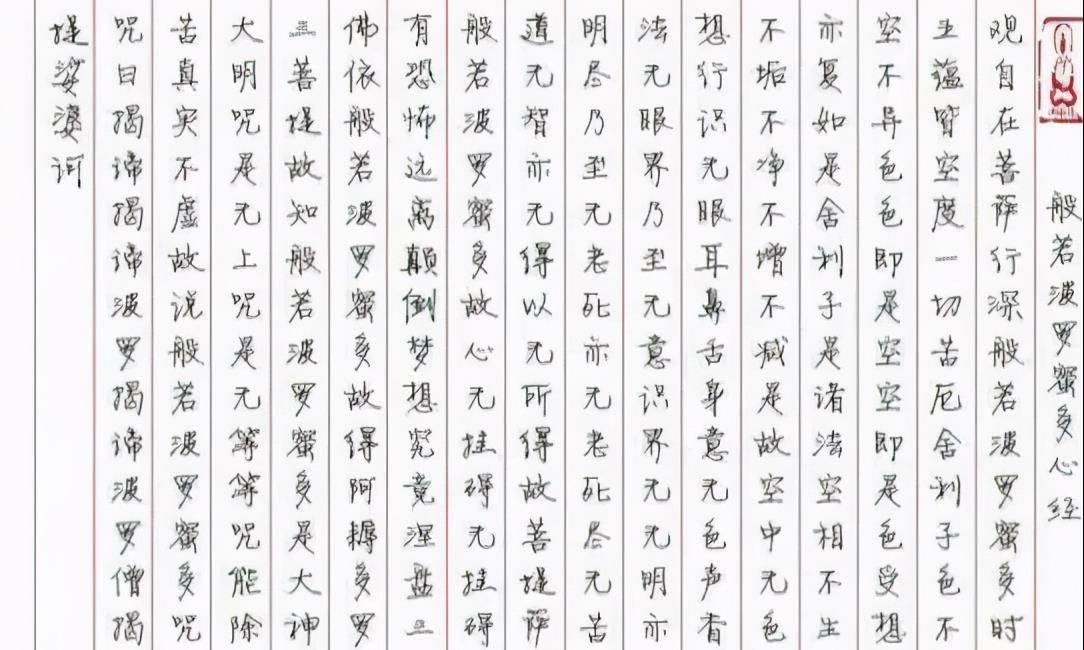 般若波罗蜜多心经
观自在菩萨行深般若波罗蜜多时
五蕴皆空度一切苦厄舍利子色不
空不异色色即是空空即是色受想
亦复如是舍利子是诸法空相不生
不垢不净不增不减是故空中无色
想行识无眼耳鼻舌身意无色声香
法无眼界乃至无意识界无无明亦
明尽乃至无老死亦无老死尽无苦
道无智亦无得以无所得故菩提萨
般若波罗蜜多故心无挂碍无挂碍
有恐怖远离颠倒梦想究竟涅盘三
佛依般若波罗蜜多故得阿耨多罗
三菩提故知般若波罗蜜多是大神
大明咒是无上咒是无等等咒能除
苦真实不虚故说般若波罗蜜多咒
咒曰揭谛揭谛波罗揭谛波罗僧揭
提娑婆诃